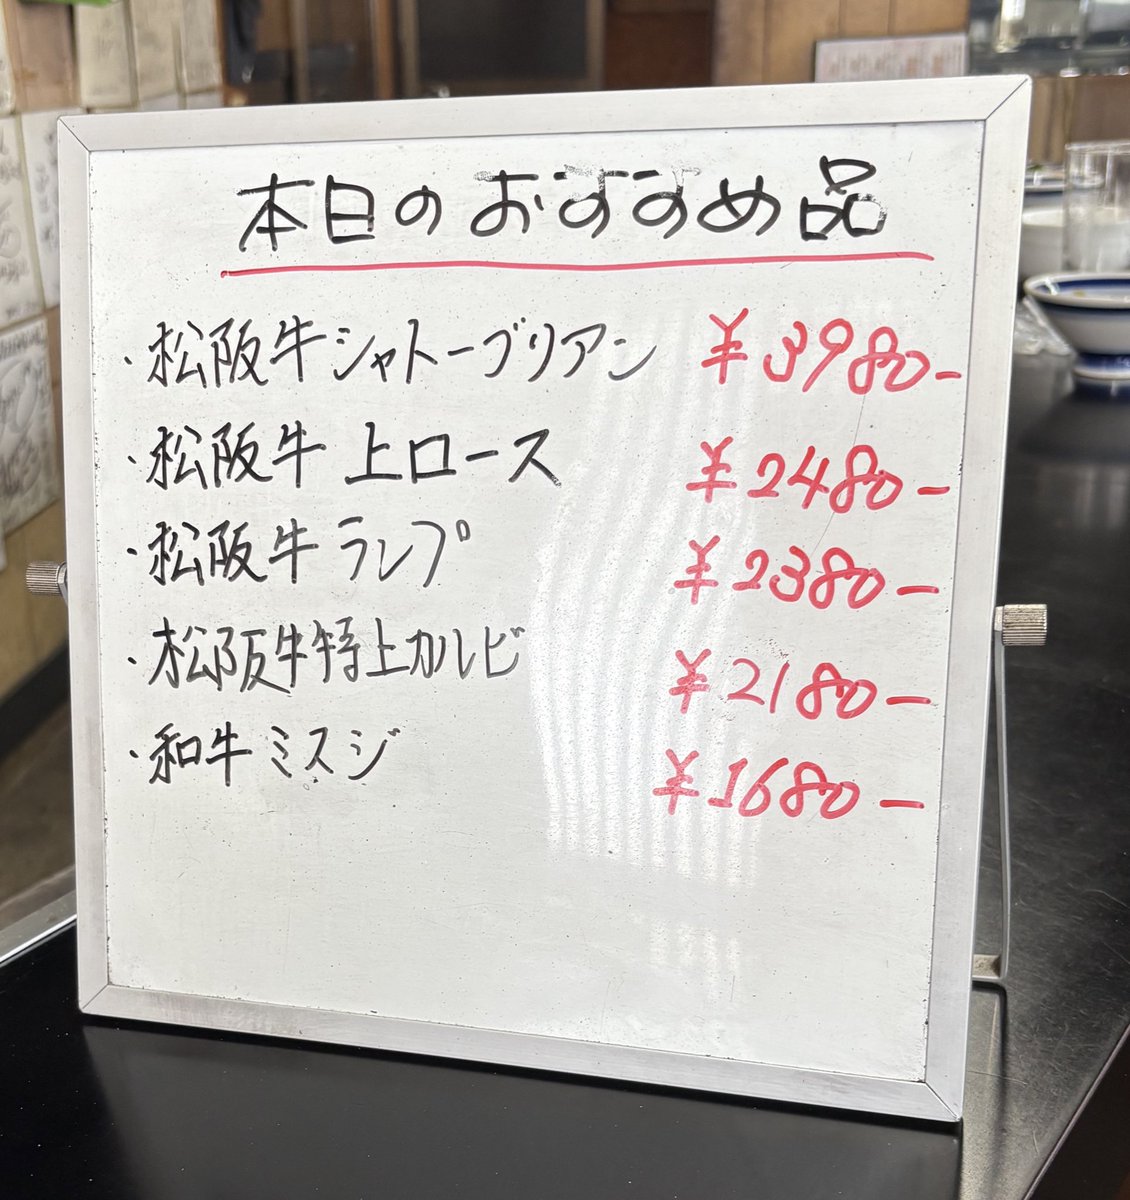 本日のおすすめ品
・松阪牛シャトーブリアン ¥3980-
・松阪牛 上ロース ¥2480-
・松阪牛 ランプ ¥2380-
・松阪牛特上カルビ ¥2180-
・和牛ミスジ ¥1680-